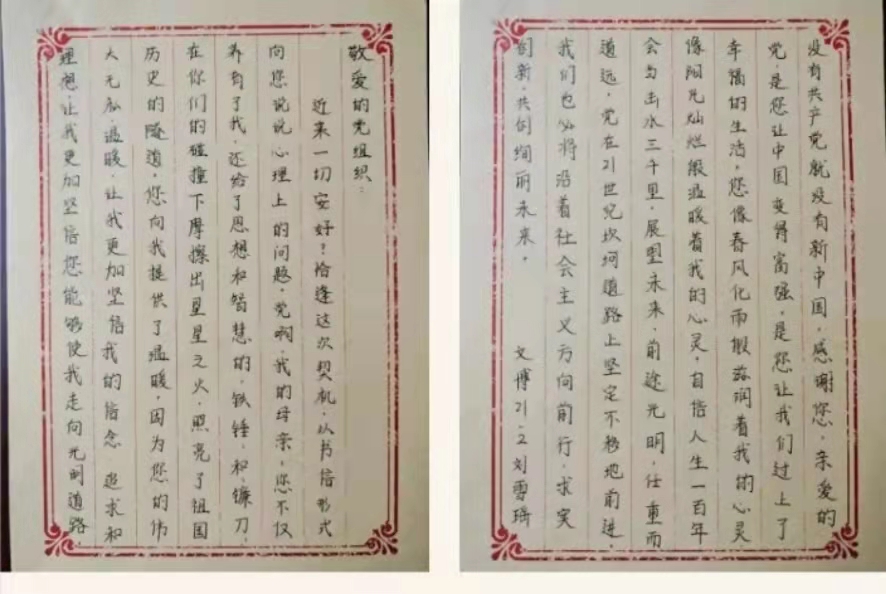 敬爱的党组织：
近来一切安好？恰逢这次契机，以书信形式
向您说说心理上的问题，党啊，我的母亲，您不仅
养育了我，还给了思想和智慧的，铁锤，和，镰刀，
在你们的碰撞下摩擦出星星之火，照亮了祖国
历史的隧道，您向我提供了温暖，因为您的伟
大无私，温暖，让我更加坚信我的信念 追求和
理想，让我更加坚信您能够使我走向光明道路，
没有共产党就没有新中国，感谢您，亲爱的
党，是您让中国变得富强，是您让我们过上了
幸福的生活，您像春风化雨般滋润着我的心灵
像阳光灿烂般温暖着我的心灵，自信人生一百年
会当击水三千里，展望未来，前途光明，任重而
道远，党在21世纪坎坷道路上坚定不移地前进，
我们也必将沿着社会主义方向前行，求实
创新，共创绚丽未来。
文博21.2刘雪瑶